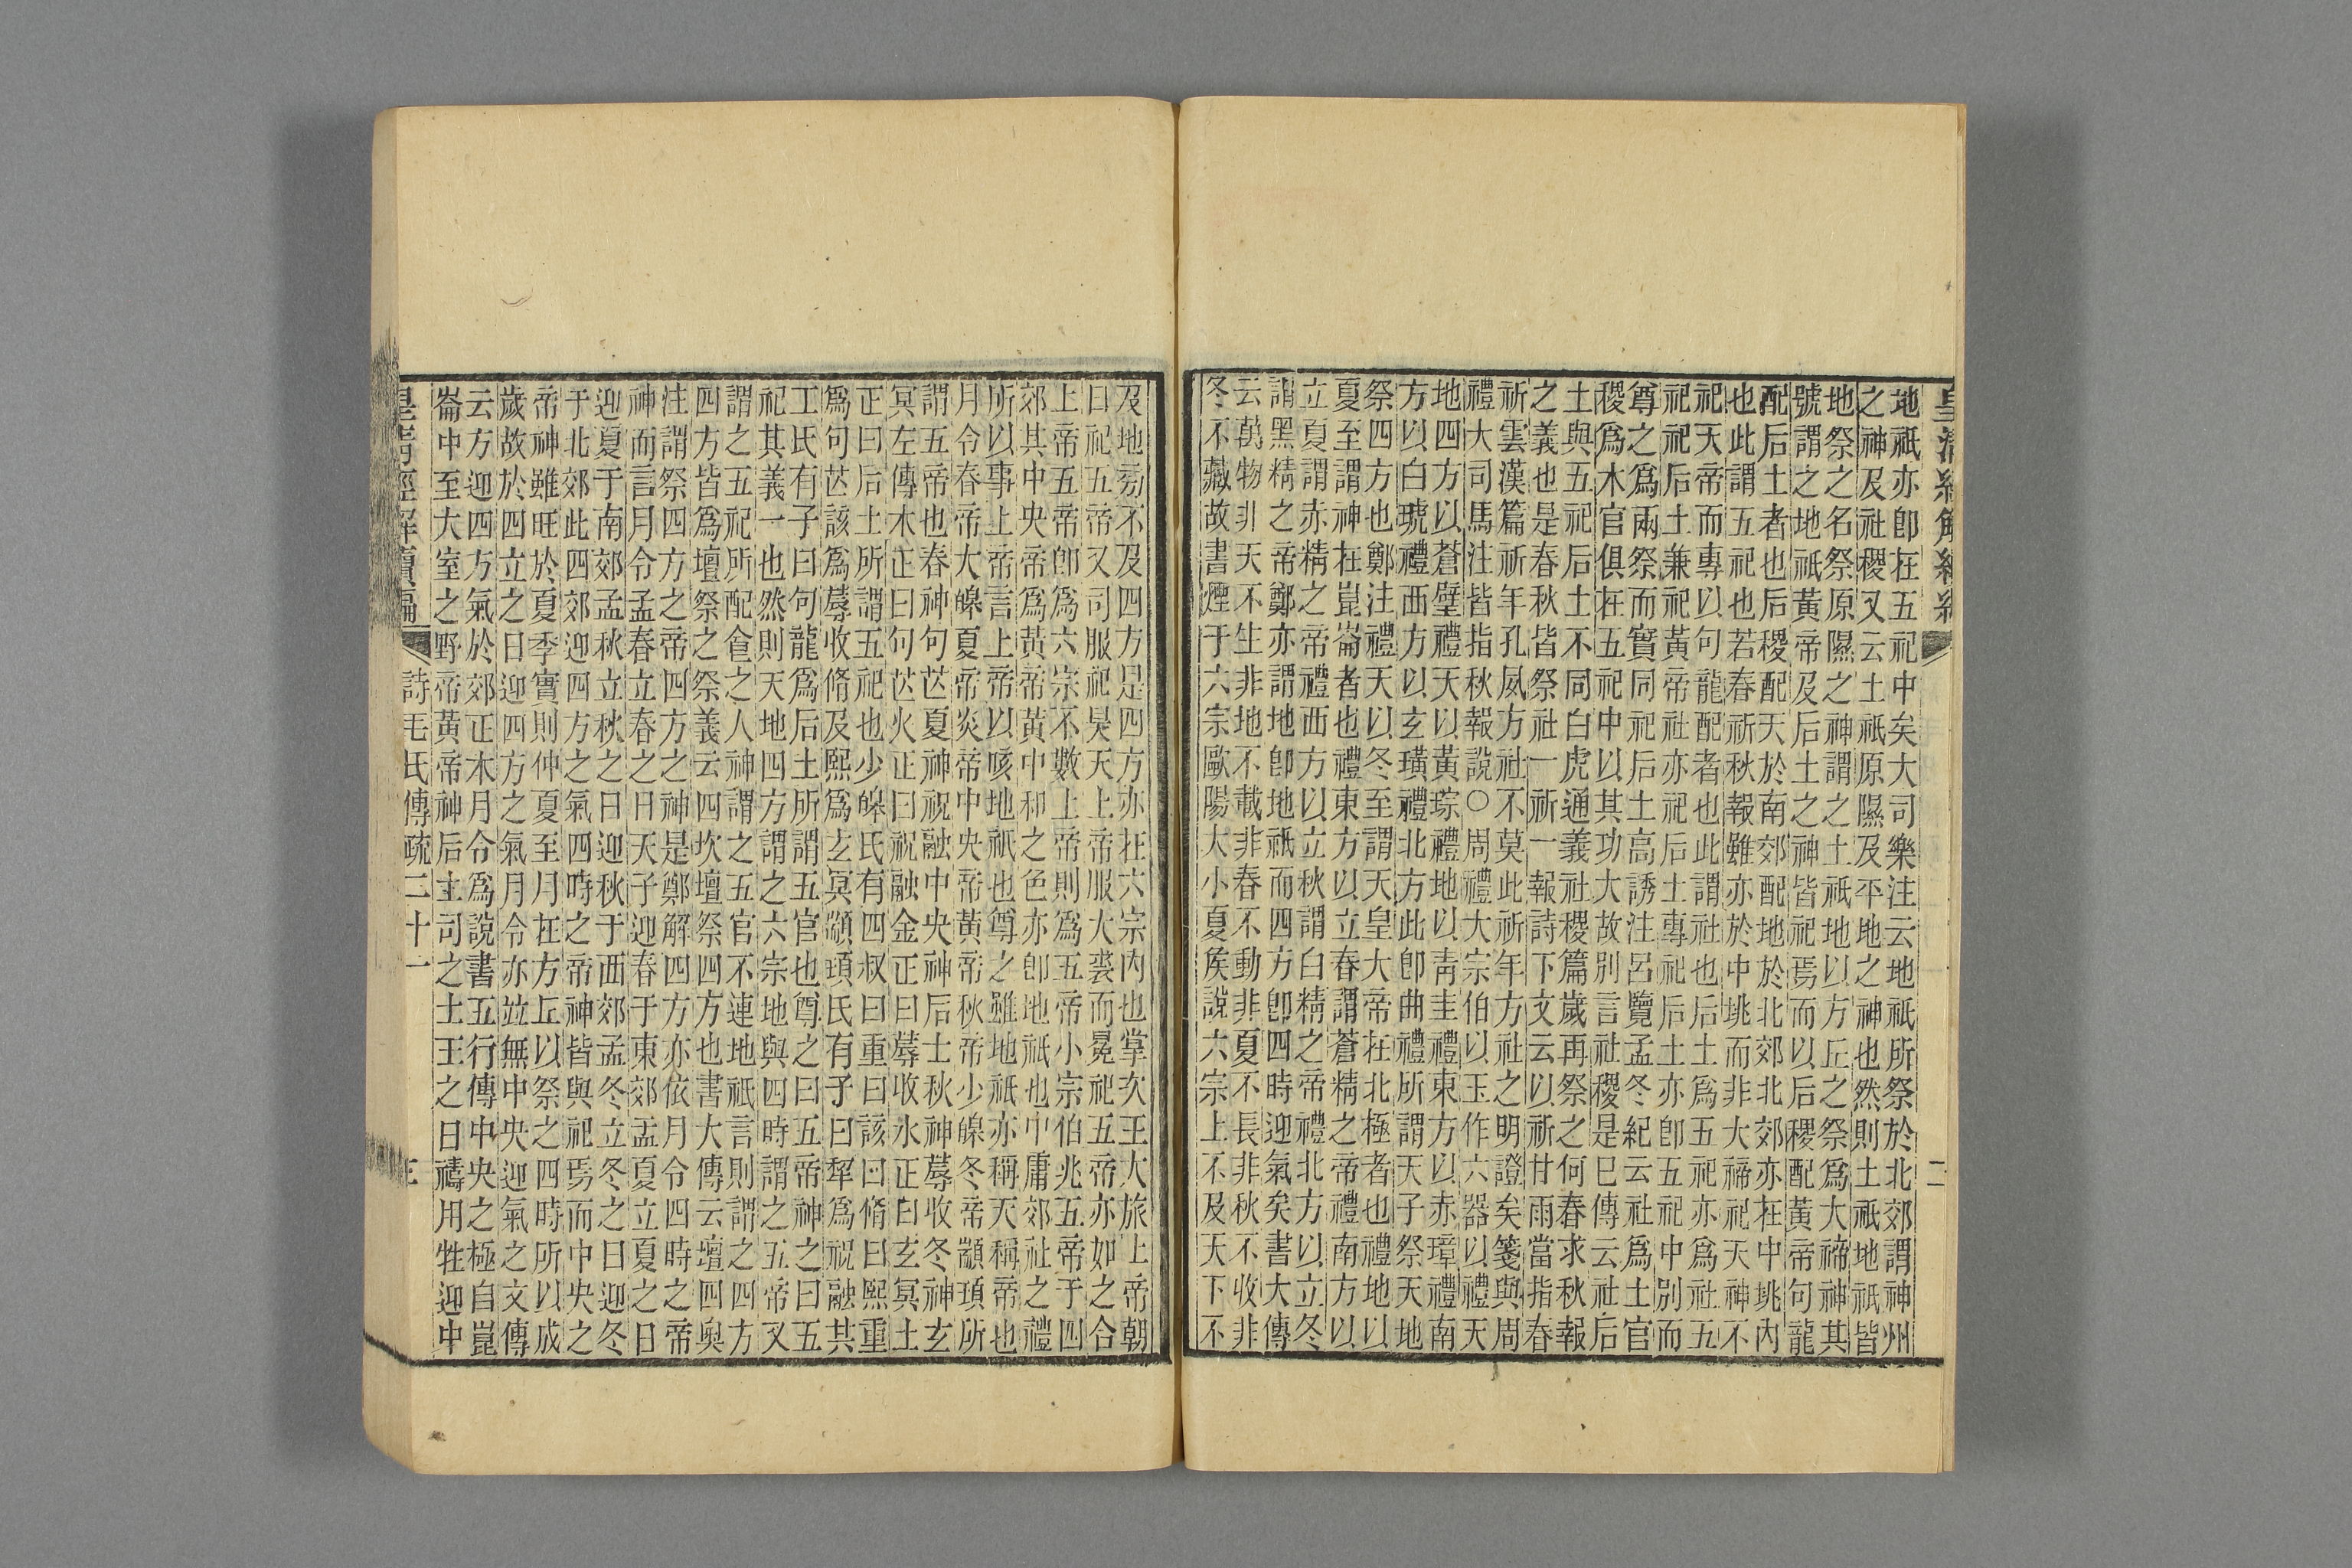 皇清經解續編 二
地祇亦卽在五祀中矣大司樂注云地祇所祭於北郊謂神州
之神及社稷又云土祇原隰及平地之神也然則土祇地祇皆
地祭之名祭原隰之神謂之土祇地以方丘之祭爲大禘神其
號謂之地祇黃帝及后土之神皆祀焉而以后稷配黃帝句龍
配后土者也后稷配天於南郊配地於北郊北郊亦在中珧內
也此謂五祀也若春祈秋報雖亦於中珧而非大禘祀天神不
祀天帝而專以句龍配者也此謂社也后土爲五祀亦爲社五
祀祀后土兼祀黃帝社亦祀后土專祀后土亦卽五祀中別而
尊之爲兩祭而實同祀后土高誘注呂覽孟冬紀云社爲土官
稷爲木官俱在五祀中以其功大故別言社稷是巳傳云社后
土與五祀后土不同白虎通義社稷篇歲再祭之何春求秋報
之義也是春秋皆祭社一祈一報詩下文云以祈甘雨當指春
祈雲漢篇祈年孔夙方社不莫此祈年方社之明證矣箋與周
禮大司馬注皆指秋報說○周禮大宗伯以玉作六器以禮天
地四方以蒼璧禮天以黃琮禮地以青圭禮東方以赤璋禮南
方以白琥禮西方以玄璜禮北方此卽曲禮所謂天子祭天地
祭四方也鄭注禮天以冬至謂天皇大帝在北極者也禮地以
夏至謂神在崑崙者也禮東方以立春謂蒼精之帝禮南方以
立夏謂赤精之帝禮西方以立秋謂白精之帝禮北方以立冬
謂黑精之帝鄭亦謂地卽地祇而四方卽四時迎氣矣書大傳
云萬物非天不生非地不載非春不動非夏不長非秋不收非
冬不藏故書煙于六宗歐陽大小夏矦說六宗上不及天下不
及地旁不及四方是四方亦在六宗內也掌次王大旅上帝朝
日祀五帝又司服祀昊天上帝服大裘而冕祀五帝亦如之合
上帝五帝卽爲六宗不數上帝則爲五帝小宗伯兆五帝于四
郊其中央帝爲黃帝黃中和之色亦卽地祇也中庸郊社之禮
所以事上帝言上帝以晐地祇也尊之雖地祇亦稱天稱帝也
月令春帝大皞夏帝炎帝中央帝黃帝秋帝少皞冬帝顓頊所
謂五帝也春神句芒夏神祝融中央神后土秋神蓐收冬神玄
冥左傳木正曰句芒火正曰祝融金正曰蓐收水正曰玄冥土
正曰后土所謂五祀也少皞氏有四叔曰重曰該曰脩曰熙重
爲句芒該爲蓐收脩及熙爲玄冥顓頊氏有子曰犂爲祝融共
工氏有子曰句龍爲后土所謂五官也尊之曰五帝神之曰五
祀其義一也然則天地四方謂之六宗地與四時謂之五帝又
謂之五祀所配食之人神謂之五官不連地祇言則謂之四方
四方皆爲壇祭之祭義云四坎壇祭四方也書大傳云壇四奧
注謂祭四方之帝四方之神是鄭解四方亦依月令四時之帝
神而言月令孟春立春之日天子迎春于東郊孟夏立夏之日
迎夏于南郊孟秋立秋之日迎秋于西郊孟冬立冬之日迎冬
于北郊此四郊迎四方之氣四時之帝神皆與祀焉而中央之
帝神雖旺於夏季實則仲夏至月在方丘以祭之四時所以成
歲故於四立之日迎四方之氣月令亦竝無中央迎氣之文傳
云方迎四方氣於郊正木月令爲說書五行傳中央之極自崑
崙中至大室之野帝黃帝神后土司之土王之日禱用牲迎中
皇清經解續編 詩毛氏傳疏二十一 三